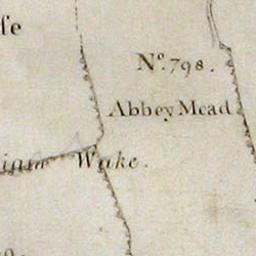 fe
No. 798.
Abbey Mead
iam Wake.